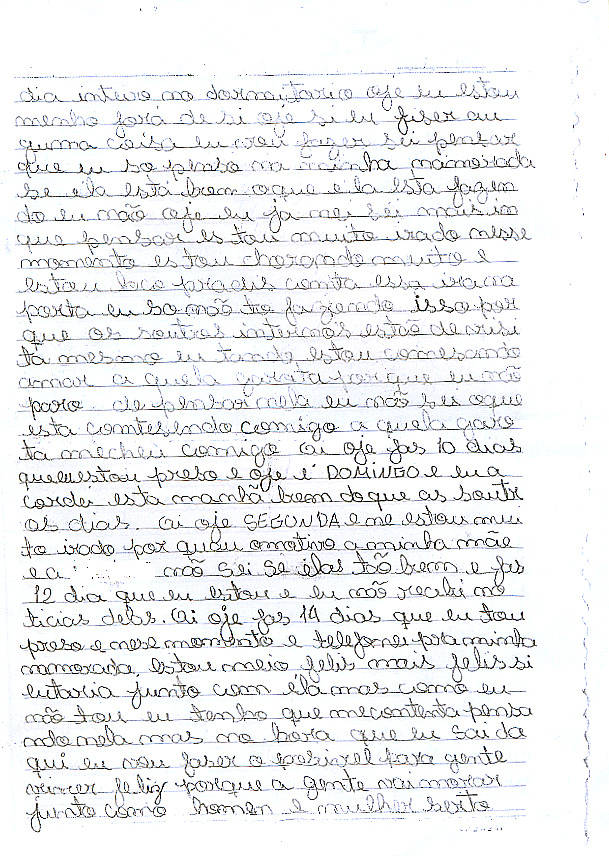 dia intero no dormitario oje eu estou
menho fora de si oje si eu fiser au
guma coisa eu vou fazer sei pensar
que eu so penso na minha namorada
se ela está bem oque e la esta fazen
do eu não oje eu ja nei sei mais in
que pensar es tou muito irado nesse
momento estou chorando muito e
estou loco pra dis conta essa ira na
porta eu so não to fazendo isso por
que os soutros internos estão de visi
ta mesmo eu tando estou comesando
amar a quela garota porque eu não
paro de pensar nela eu não sei oque
esta contesendo comigo a quela garo
ta mecheu comigo ai oje fas 10 dias
queeu estou preso e oje é DOMINGO e eu a
cordei esta manhã bem do que as soutr
os dias. Ai oje SEGUNDA e me estou mui
to irado por quau omotivo a minha mãe
e a não sei se elas tão bem e fas
12 dia que eu estou e eu não recibi no
ticias delas. Ai oje fas 14 dias que eu tou
preso e nese momento e telefonei pra minha
namorada, estou meio felis mais felis si
eutaria junto com éla mas como eu
não tou eu tenho que mecontenta pensa
ndo nela mas na hora que eu sai da
qui eu vou faser o posivel para gente
vincer feliz porque a gente vai morar
junto como homen e mulher serto